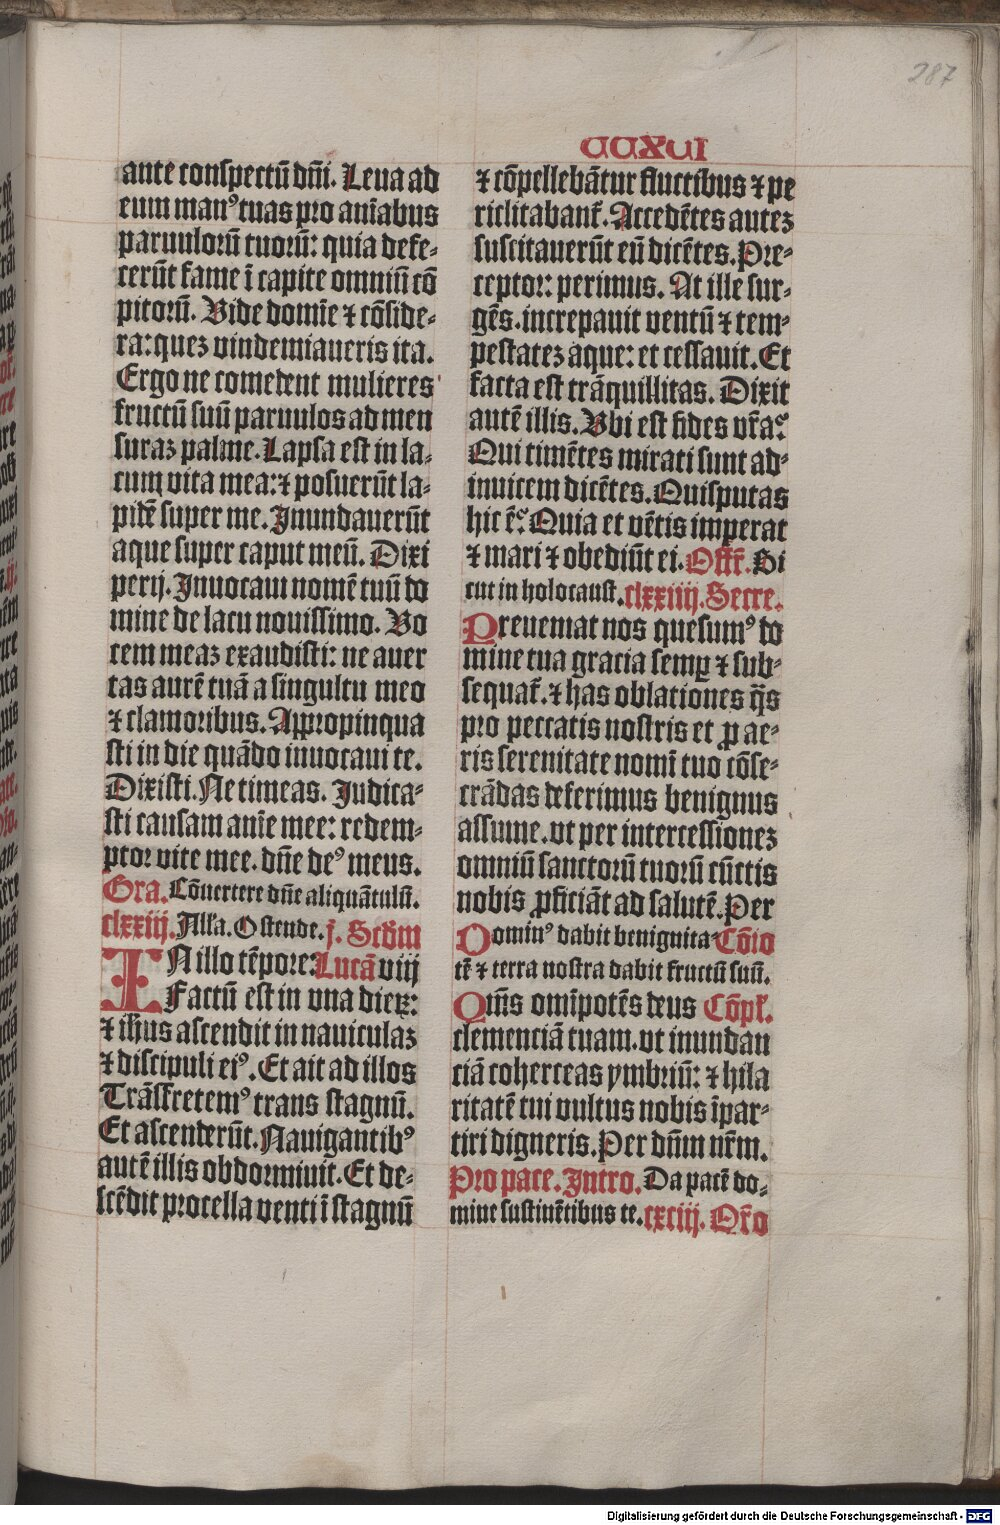 287
CCXVI
ante conspectū dn̄i. Leua ad
eum manꝰ tuas pro aīabus
paruulorū tuorū: quia defe-
cerūt fame ī capite omniū cō
pitorū. Vide domīe ⁊ cōside-
ra: quez vindemiaueris ita.
Ergo ne comedent mulieres
fructū suū paruulos ad men
suraz palme. Lapsa est in la-
cum vita mea: ⁊ posuerūt la-
pidē super me. Inundauerūt
aque super caput meū. Dixi
perij. Inuocaui nomē tuū do
mine de lacu nouissimo. Vo
cem meaz exaudisti: ne auer
tas aurē tuā a singultu meo
⁊ clamoribus. Appropinqua
sti in die quādo inuocaui te.
Dixisti. Ne timeas. Iudica-
sti causam aīe mee: redem-
ptor vite mee. dn̄e deꝰ meus.
Gra. Cōuertere dn̄e aliquātulū.
clxxiij. All'a. Ostende. j. Scd̄m
IN illo tēpore. Lucā viij
Factū est in vna dierꝫ:
⁊ ih̄us ascendit in nauiculaz
⁊ discipuli eiꝰ. Et ait ad illos
Trāsfretemꝰ trans stagnū.
Et ascenderūt. Nauigantibꝰ
autē illis obdormiuit. Et de-
scēdit procella venti ī stagnū
⁊ cōpellebātur fluctibus ⁊ pe
riclitabant̄. Accedētes autez
suscitauerūt eū dicētes. Pre-
ceptor: perimus. At ille sur-
gēs. increpauit ventū ⁊ tem-
pestatez aque: et cessauit. Et
facta est trāquillitas. Dixit
autē illis. Vbi est fides vr̄a?
Qui timētes mirati sunt ad-
inuicem dicētes. Quis putas
hic ē? Quia et vētis imperat
⁊ mari ⁊ obediūt ei. Offr̄. Si
cut in holocaust. clxxiiij. Secre.
Preueniat nos quesumꝰ do
mine tua gracia semꝑ ⁊ sub-
sequat̄. ⁊ has oblationes q̄s
pro peccatis nostris et ꝓ ae-
ris serenitate nomī tuo cōse-
crādas deferimus benignus
assume. vt per intercessionez
omniū sanctorū tuorū cūctis
nobis ꝓficiāt ad salutē. Per
Dominꝰ dabit benignita- Cōio
tē ⁊ terra nostra dabit fructū suū.
Qm̄s omīpotēs deus Cōpl̄.
clemenciā tuam. vt inundan
ciā coherceas ymbriū: ⁊ hila
ritatē tui vultus nobis īpar-
tiri digneris. Per dn̄m nr̄m.
Pro pace. Intro. Da pacē do-
mine sustinētibus te. cxciij. Or̄o
Digitalisierung gefördert durch die Deutsche Forschungsgemeinschaft - DFG